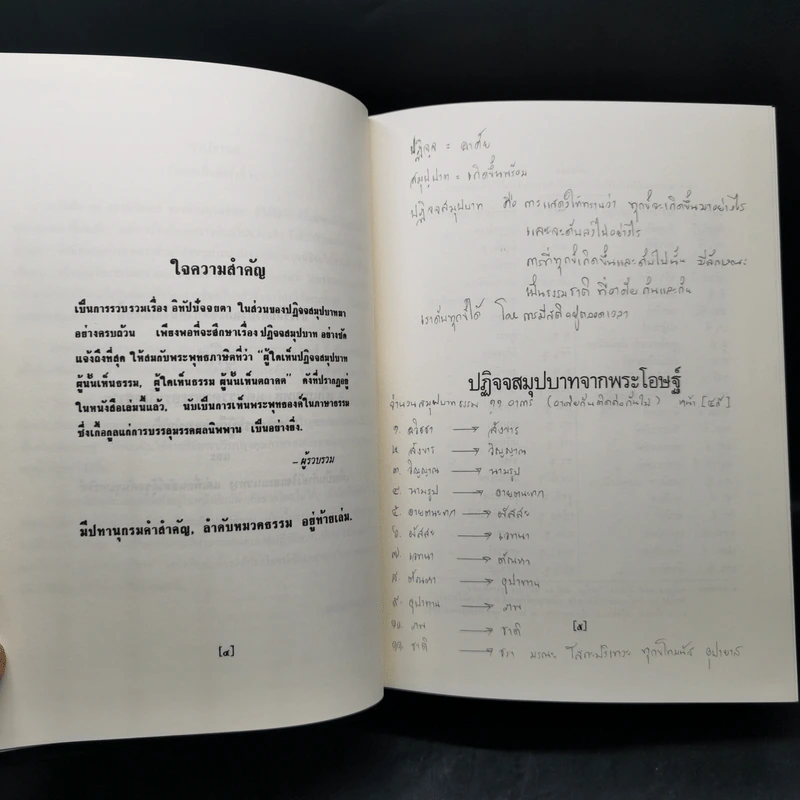 ใจความสำคัญ
เป็นการรวบรวมเรื่อง อิทัปปัจจยตา ในส่วนของปฏิจจสมุปบาทมา
อย่างครบถ้วน เพียงพอที่จะศึกษาเรื่อง ปฏิจจสมุปบาท อย่างชัด
แจ้งถึงที่สุด ให้สมกับพระพุทธภาษิตที่ว่า "ผู้ใดเห็นปฏิจจสมุปบาท
ผู้นั้นเห็นธรรม, ผู้ใดเห็นธรรม ผู้นั้นเห็นตถาคต" ดังที่ปรากฏอยู่
ในหนังสือเล่มนี้แล้ว, นับเป็นการเห็นพระพุทธองค์ในภาษาธรรม
ซึ่งเกื้อกูลแก่การบรรลุมรรคผลนิพพาน เป็นอย่างยิ่ง.
– ผู้รวบรวม
มีปทานุกรมคำสำคัญ, ลำดับหมวดธรรม อยู่ท้ายเล่ม.
[๔]
ปฏิจจ = อาศัย
สมุปฺปาท = เกิดขึ้นพร้อม
ปฏิจจสมุปบาท คือ การแสดงให้ทราบว่า ทุกข์จะเกิดขึ้นมาอย่างไร
และจะดับลงไปอย่างไร
การที่ทุกข์เกิดขึ้นและดับไปนั้น มีลักษณะ
เป็นธรรมชาติ ที่อาศัยกันและกัน
เราดับทุกข์ได้ โดย การมีสติอยู่ตลอดเวลา
ปฏิจจสมุปบาทจากพระโอษฐ์
จำนวนสมุปบาทธรรม ๑๑ อาการ (อาศัยกันติดต่อกันไป) หน้า [๔๕]
๑. อวิชชา → สังขาร
๒. สังขาร → วิญญาณ
๓. วิญญาณ → นามรูป
๔. นามรูป → อายตนะ
๕. อายตนะ → ผัสสะ
๖. ผัสสะ → เวทนา
๗. เวทนา → ตัณหา
๘. ตัณหา → อุปาทาน
๙. อุปาทาน → ภพ
๑๐. ภพ → ชาติ
[๕]
๑๑. ชาติ → ชรา มรณะ โสกะปริเทวะ ทุกข์โทมนัส อุปายาส